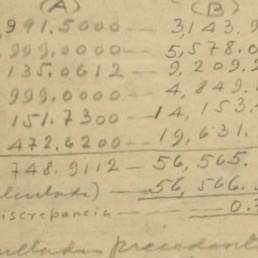 (A) (B)
,991.5000 — 3,143.9
,999.0000 — 5,578.0
135.0612 — 9,209.2
999.0000 — 4,849.
151.7300 — 14,153.
472.6200 — 19,631.
748.9112 — 56,565.
lculada) — 56,566.
iscrepancia — 0.7
ultados precedent